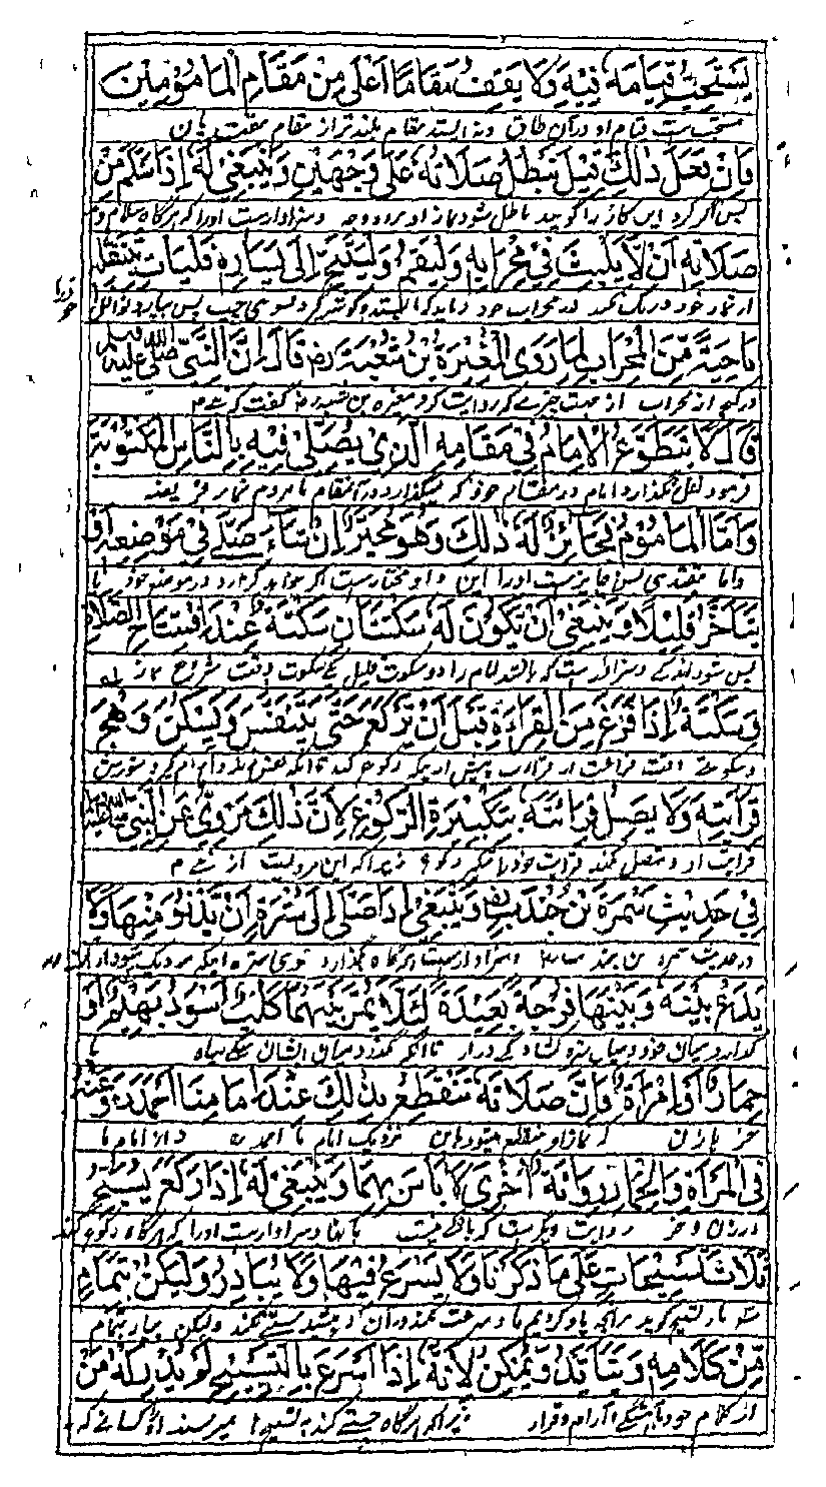 يستحب قيامه فيه ولا يقف مقاما اعلى من مقام المامومين
مستحب ست قيام او در آن طاق و نه ایستد بمقام بلند تر از مقام
فان فعل ذلك قيل تبطل صلاته على وجهين وينبغي له اذا سلم من
پس اگر کرد این کار را گویند باطل شود نماز او بر دو وجه و سزاوارست او را که هرگاه سلام دهد
صلاته ان لا يلبث في محرابه وليقم وليتنح الى يساره فليات بتنفله
از نماز خود درنگ نکند در محراب خود و باید که ایستد و گوشه گیرد بسوی چپ پس بیارد نوافل خود را
ناحية من المحراب لما روى المغيرة بن شعبة رض قال ان النبي صلى الله عليه وسلم
در کنج از محراب از جهت چیزے که روایت کرد مغیره بن شعبه رض گفت که
قال لا يتطوع الامام في مقامه الذي يصلي فيه بالناس المكتوبة
فرمود نفل نگذارد امام در مقام خود که میگذارد در آنمقام با مردم نماز فریضه
واما الماموم فجائز له ذلك وهو مخير ان شاء صلى في موضعه او
واما مقتدی پس جایزست او را این و او مختارست اگر خواهد گذارد در موضع خود یا
يتاخر قليلا وينبغي ان يكون له سكتتان سكتة عند افتتاح الصلاة
پس شود اندکے و سزاوارست که باشد امام را دو سکوت قلیل یکے سکوت وقت شروع نماز
وسكتة اذا فرغ من القراءة قبل ان يركع حتى يتنفس ويسكن وهج
و سکوتے وقت فراغت از قراءت پیش از آنکه رکوع کند تا آنکه نفس زند و آرام گیرد سوزش
قراءته ولا يصل قراءته بتكبيرة الركوع لان ذلك مروي عن النبي
قراءت او و متصل نکند قراءت خود با تکبیر رکوع زیرا که این مرویست از
في حديث سمرة بن جندب وينبغي اذا صلى الى سترة ان يدنو منها ولا
در حدیث سمره بن جندب و سزاوارست هرگاه گذارد سوی ستره اینکه نزدیک شود از آن
يدع بينه وبينها فرجة بعيدة لئلا يمر بينهما كلب اسود بهيم او
گذارد میان خود و میان ستره کشادگی دراز تا آنکه نگذرد میان ایشان سگ سیاه یا
حمار او امراة فان صلاته تنقطع بذلك عند امامنا احمد وعنه
خر یا زن که نماز او منقطع میشود باین نزدیک امام ما احمد و از امام ما
في المراة والحمار رواية اخرى لا باس بهما وينبغي له اذا ركع يسبح
در زن و خر روایت دیگرست که باکے نیست بآنها و سزاوارست او را که هرگاه رکوع کند
ثلاث تسبيحات على ما ذكرنا ولا يسرع فيها ولا يبادر وليكن بتمام
سه بار تسبیح گوید بر آنچه یاد کردیم ما و سرعت نکند در آن و پیشدستے نکند ولیکن بتمام
من كلامه ويتايد ويمكن لانه اذا اسرع بالتسبيح لم يدركه من
از کلام خود بآهستگی و آرام و قرار زیرا که هرگاه جستے کند به تسبیح نمیرسند او را کسانے که